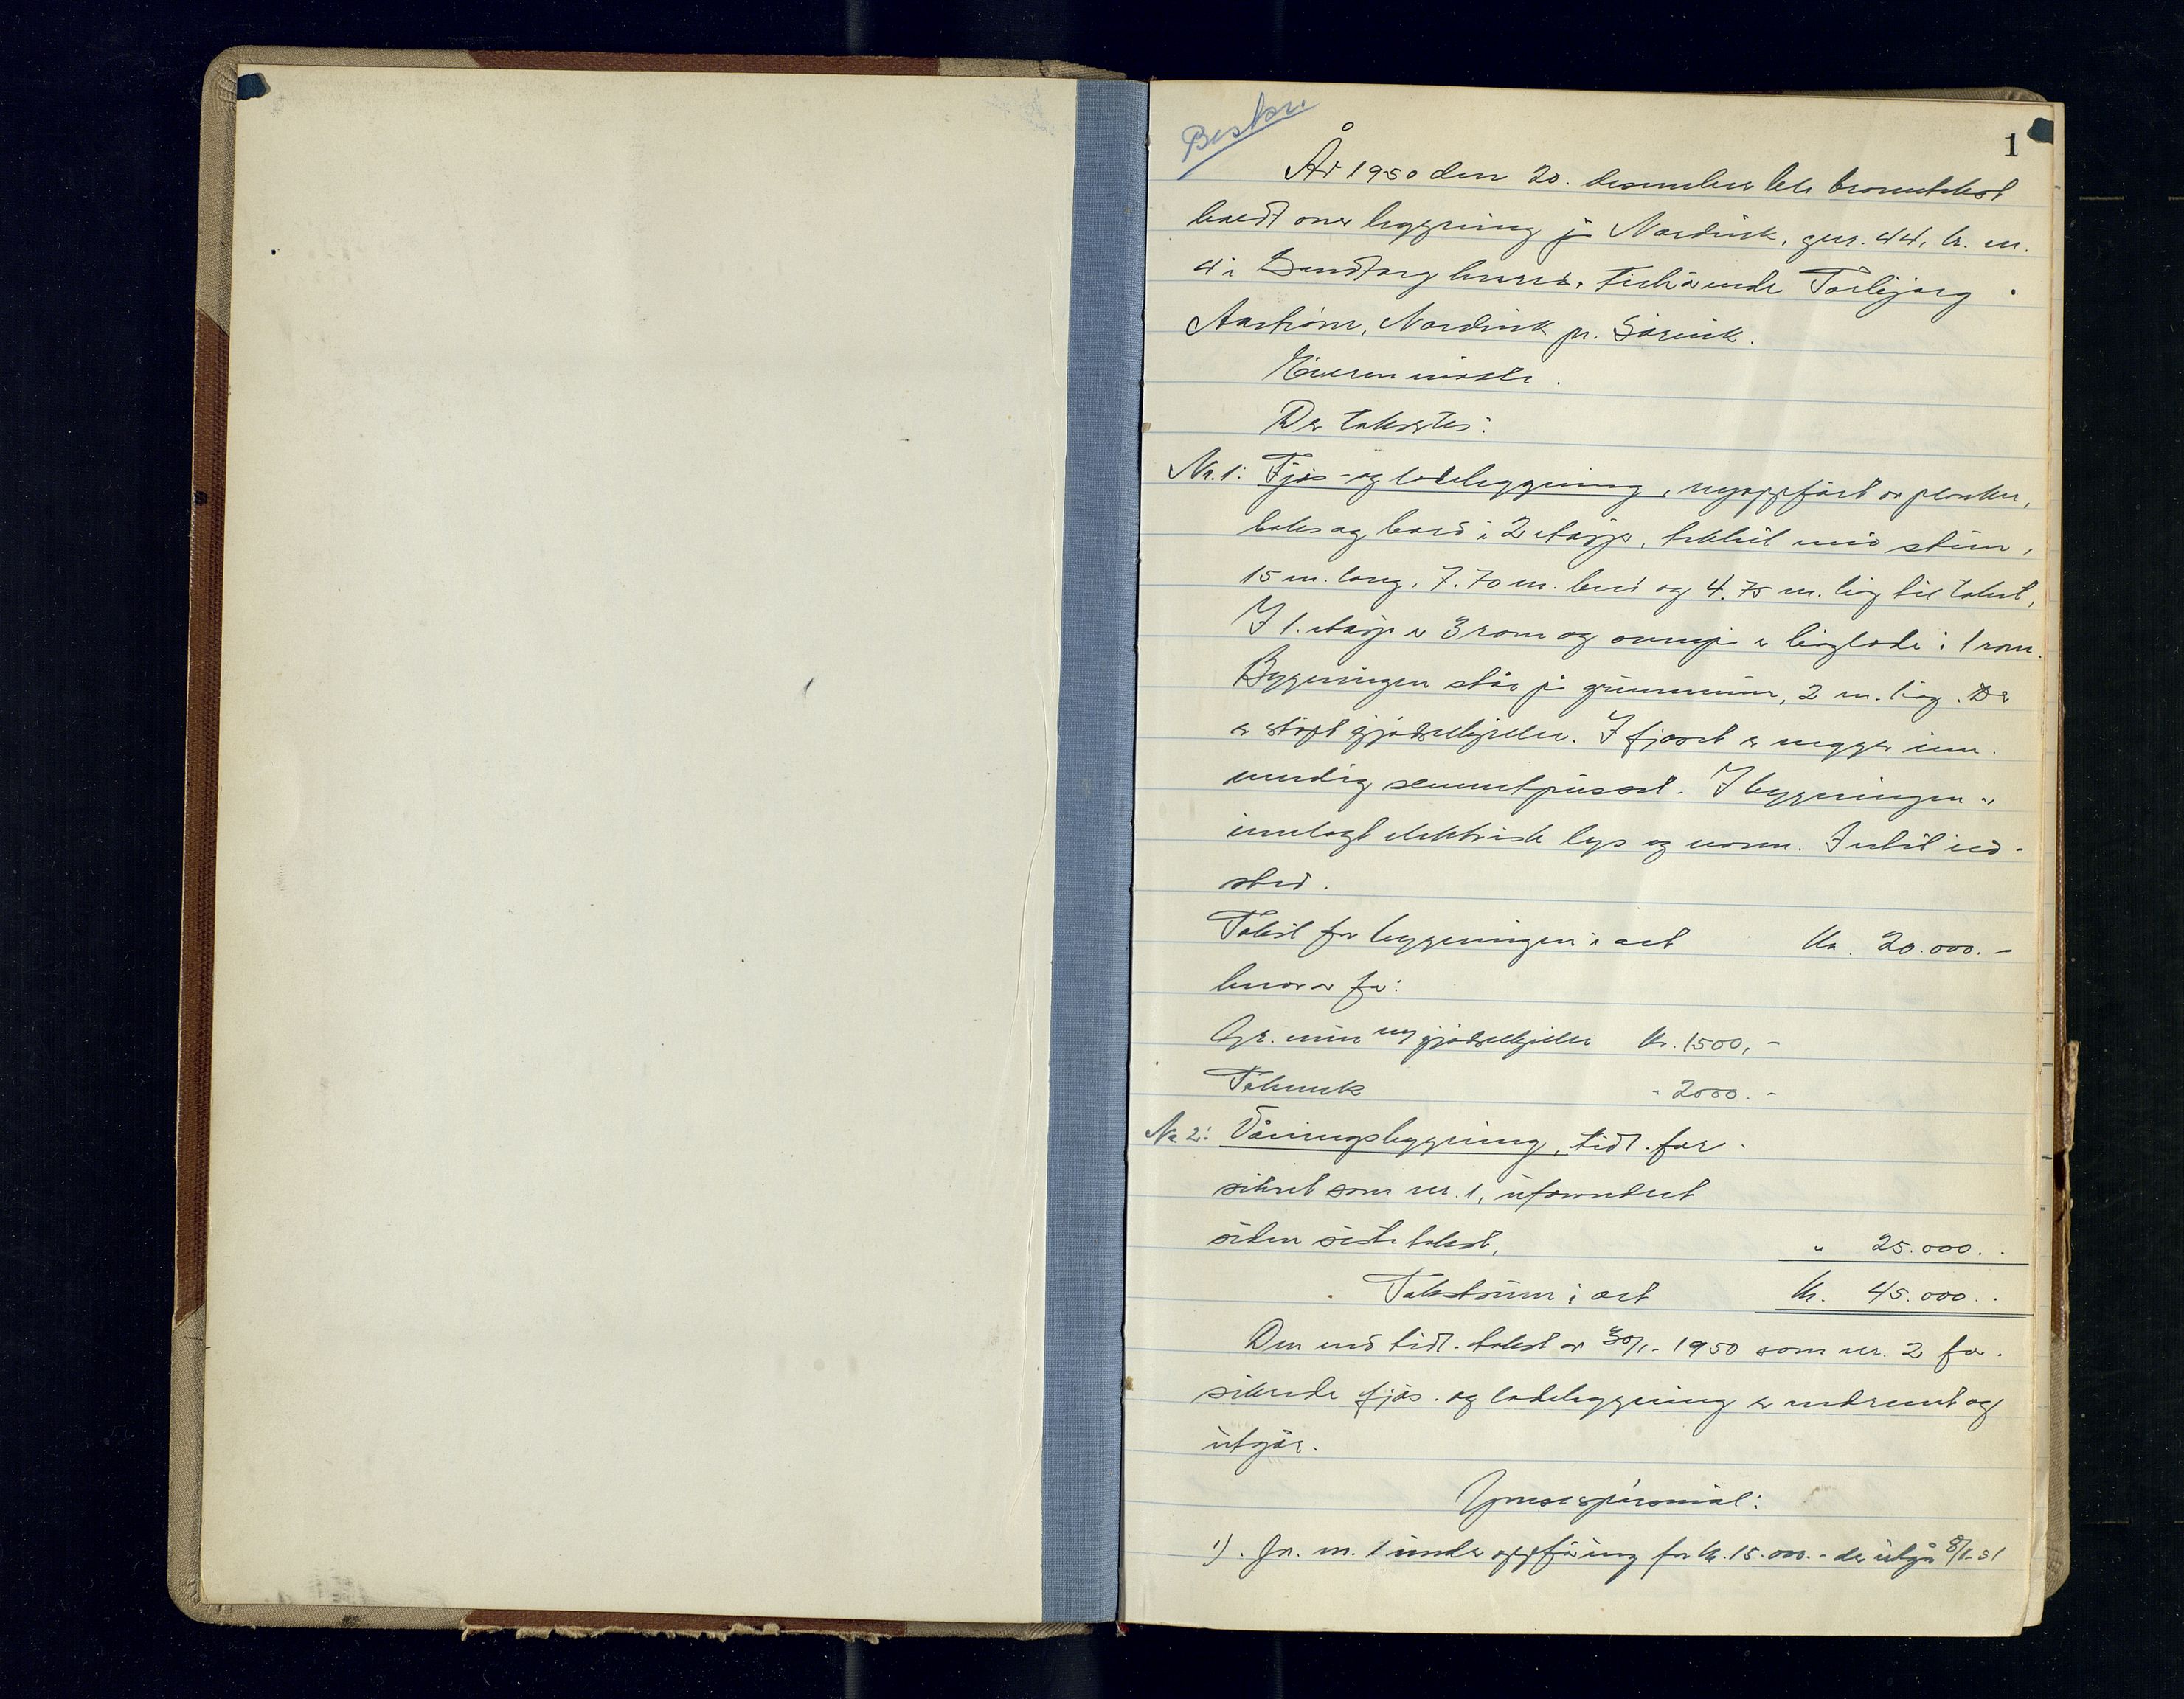 1
År 1950 den 20. desember ble branntakst
holdt over bygning på Nordvik, gnr. 44, br. nr.
4 i Sandtorg herred, tilhørende Torbjørg
Aastrøm, Nordvik pr. Sørvik.
Eieren møtte.
Der takstes:
Nr. 1: Fjøs- og ladebygning, nyoppført av planker,
boks og bord i 2 etasjer, tekket med steen,
15 m. lang, 7.70 m. bred og 4.75 m. høg til takst,
I 1. etasje er 3 rom og ovenpå er høylade i 1 rom.
Bygningen står på grunnmur, 2 m. høg. Der
er støpt gjødselkjeller. I fjøset er vegger inn-
vendig sementpusset. I bygningen er
innlagt elektrisk lys og vann. Intet ild-
sted.
Takst for bygningen i alt Kr. 20.000.-
herav for:
Gr. mur og gjødselkjeller Kr. 1500,-
Taktekk - 2000.-
Nr. 2: Våningsbygning, tidl. for-
sikret som nr. 1, uforandret
siden siste takst, " 25.000.-
Takstsum i alt Kr. 45.000.-
Den ved tidl. takst av 30/1-1950 som nr. 2 for-
sikrede fjøs- og ladebygning er nedrevet og
utgår.
1). Jn. nr. 1 under oppføring for kr. 15.000.- der utgår 8/1-51